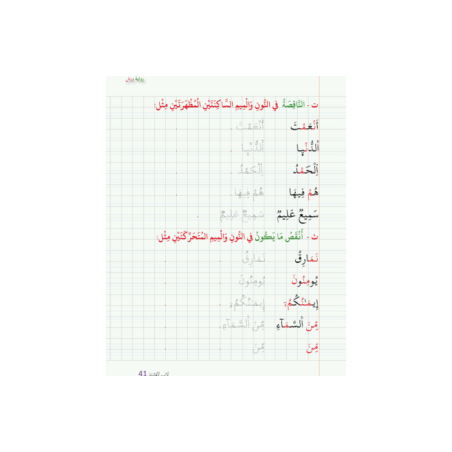 رواية ورش
ت - النَّاقِصَةُ فِي النُّونِ وَالْمِيمِ السَّاكِنَتَيْنِ الْمُظْهَرَتَيْنِ مِثْل:
أَنْعَمْتَ أَنْعَمْتَ
اَلدُّنْيِا اَلدُّنْيِا
اَلْحَمْدُ اَلْحَمْدُ
هُمْ فِيهَا هُمْ فِيهَا
سَمِيعٌ عَلِيمٌ سَمِيعٌ عَلِيمٌ
ث - أَنْقَصُ مَا يَكُونُ فِي النُّونِ وَالْمِيمِ الْمُتَحَرِّكَتَيْنِ مِثْل:
نَمَارِقُ نَمَارِقُ
يُومِنُونَ يُومِنُونَ
إِيمَٰنُكُمُۥٓ إِيمَٰنُكُمُۥٓ
مِّنَ اَلسَّمَآءِ مِّنَ اَلسَّمَآءِ
مِّنَ مِّنَ
41